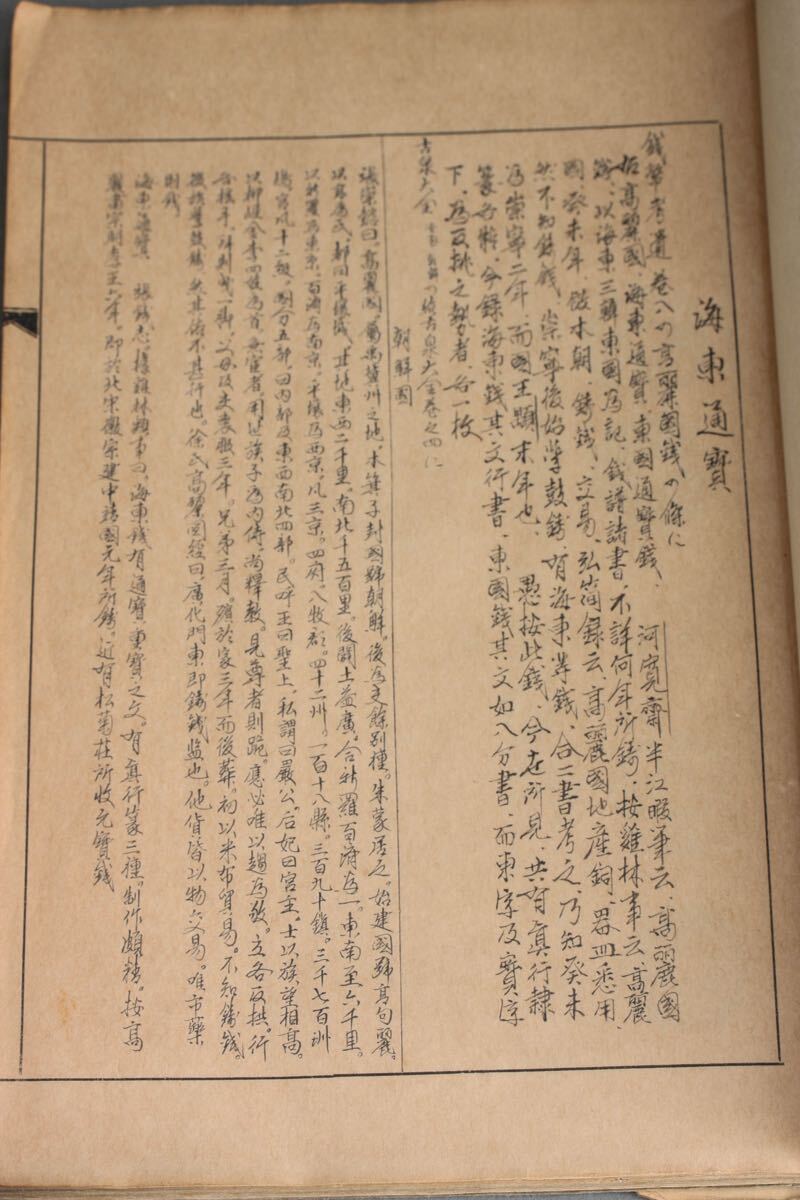 海東通寳
錢幣考遺 卷八の高麗國錢の條に
按高麗國、海東通寳、東國通寳錢、 河寬齋半江暇筆云、高麗國
錢、以海東三韓東國爲記、錢譜諸書、不詳何年所鑄、按雞林事云高麗
國、癸未年、倣本朝、鑄錢、交易、弘簡録云、高麗國地產銅、器皿悉用、
然不知鑄錢、崇寧後始學鼓鑄、有海東等錢、合二書考之、乃知癸未
爲崇寧二年、而國王顒末年也、 愚按此錢、今在所見、共有眞行隷
篆各種、今録海東錢其文行書、東國錢其文如八分書、而東字及寳字
下、爲反挑之勢者、各一枚
古泉大全 の續古泉大全卷之四に
朝鮮國
曰、高麗國、屬禹冀州之地、本箕子封國號朝鮮。後爲夫餘別種。朱蒙居之。始建國號高句麗。
以高爲氏、都曰平壤城、其地東西二千里。南北千五百里。後闢土益廣。合新羅百濟爲一。東南至六千里。
以新羅爲東京。百濟爲南京。平壤爲西京。凡三京。四府。八牧郡。四十二州。一百十八縣。三百九十鎮。三千七百洲
凡十二級。別分五部。曰内部及東西南北四部。民呼王曰聖上。私謂曰嚴公。后妃曰宮主。士以族望相高。
以柳崔金李四姓爲首。無宦者。則世族子爲内侍。尚釋教。見尊者則跪。應必唯以趨爲敬。立各反拱。行
父母及夫喪服三年。兄弟三月。殯於家三年而後葬。初以米布貿易。不知鑄錢。
後始學鼓鑄。然其俗不甚行也。徐氏高麗圖經曰、廣化門東即鑄錢監也。他貨皆以物交易。唯市藥
則錢
海東通寳 張錢志。據雞林類事曰。海東錢有通寳重寳之文。有眞行篆三種。制作頗精。按高
麗肅宗明孝王六年。即於北宋徽宗建中靖國元年所鑄。近有松菊莊所收元寳錢